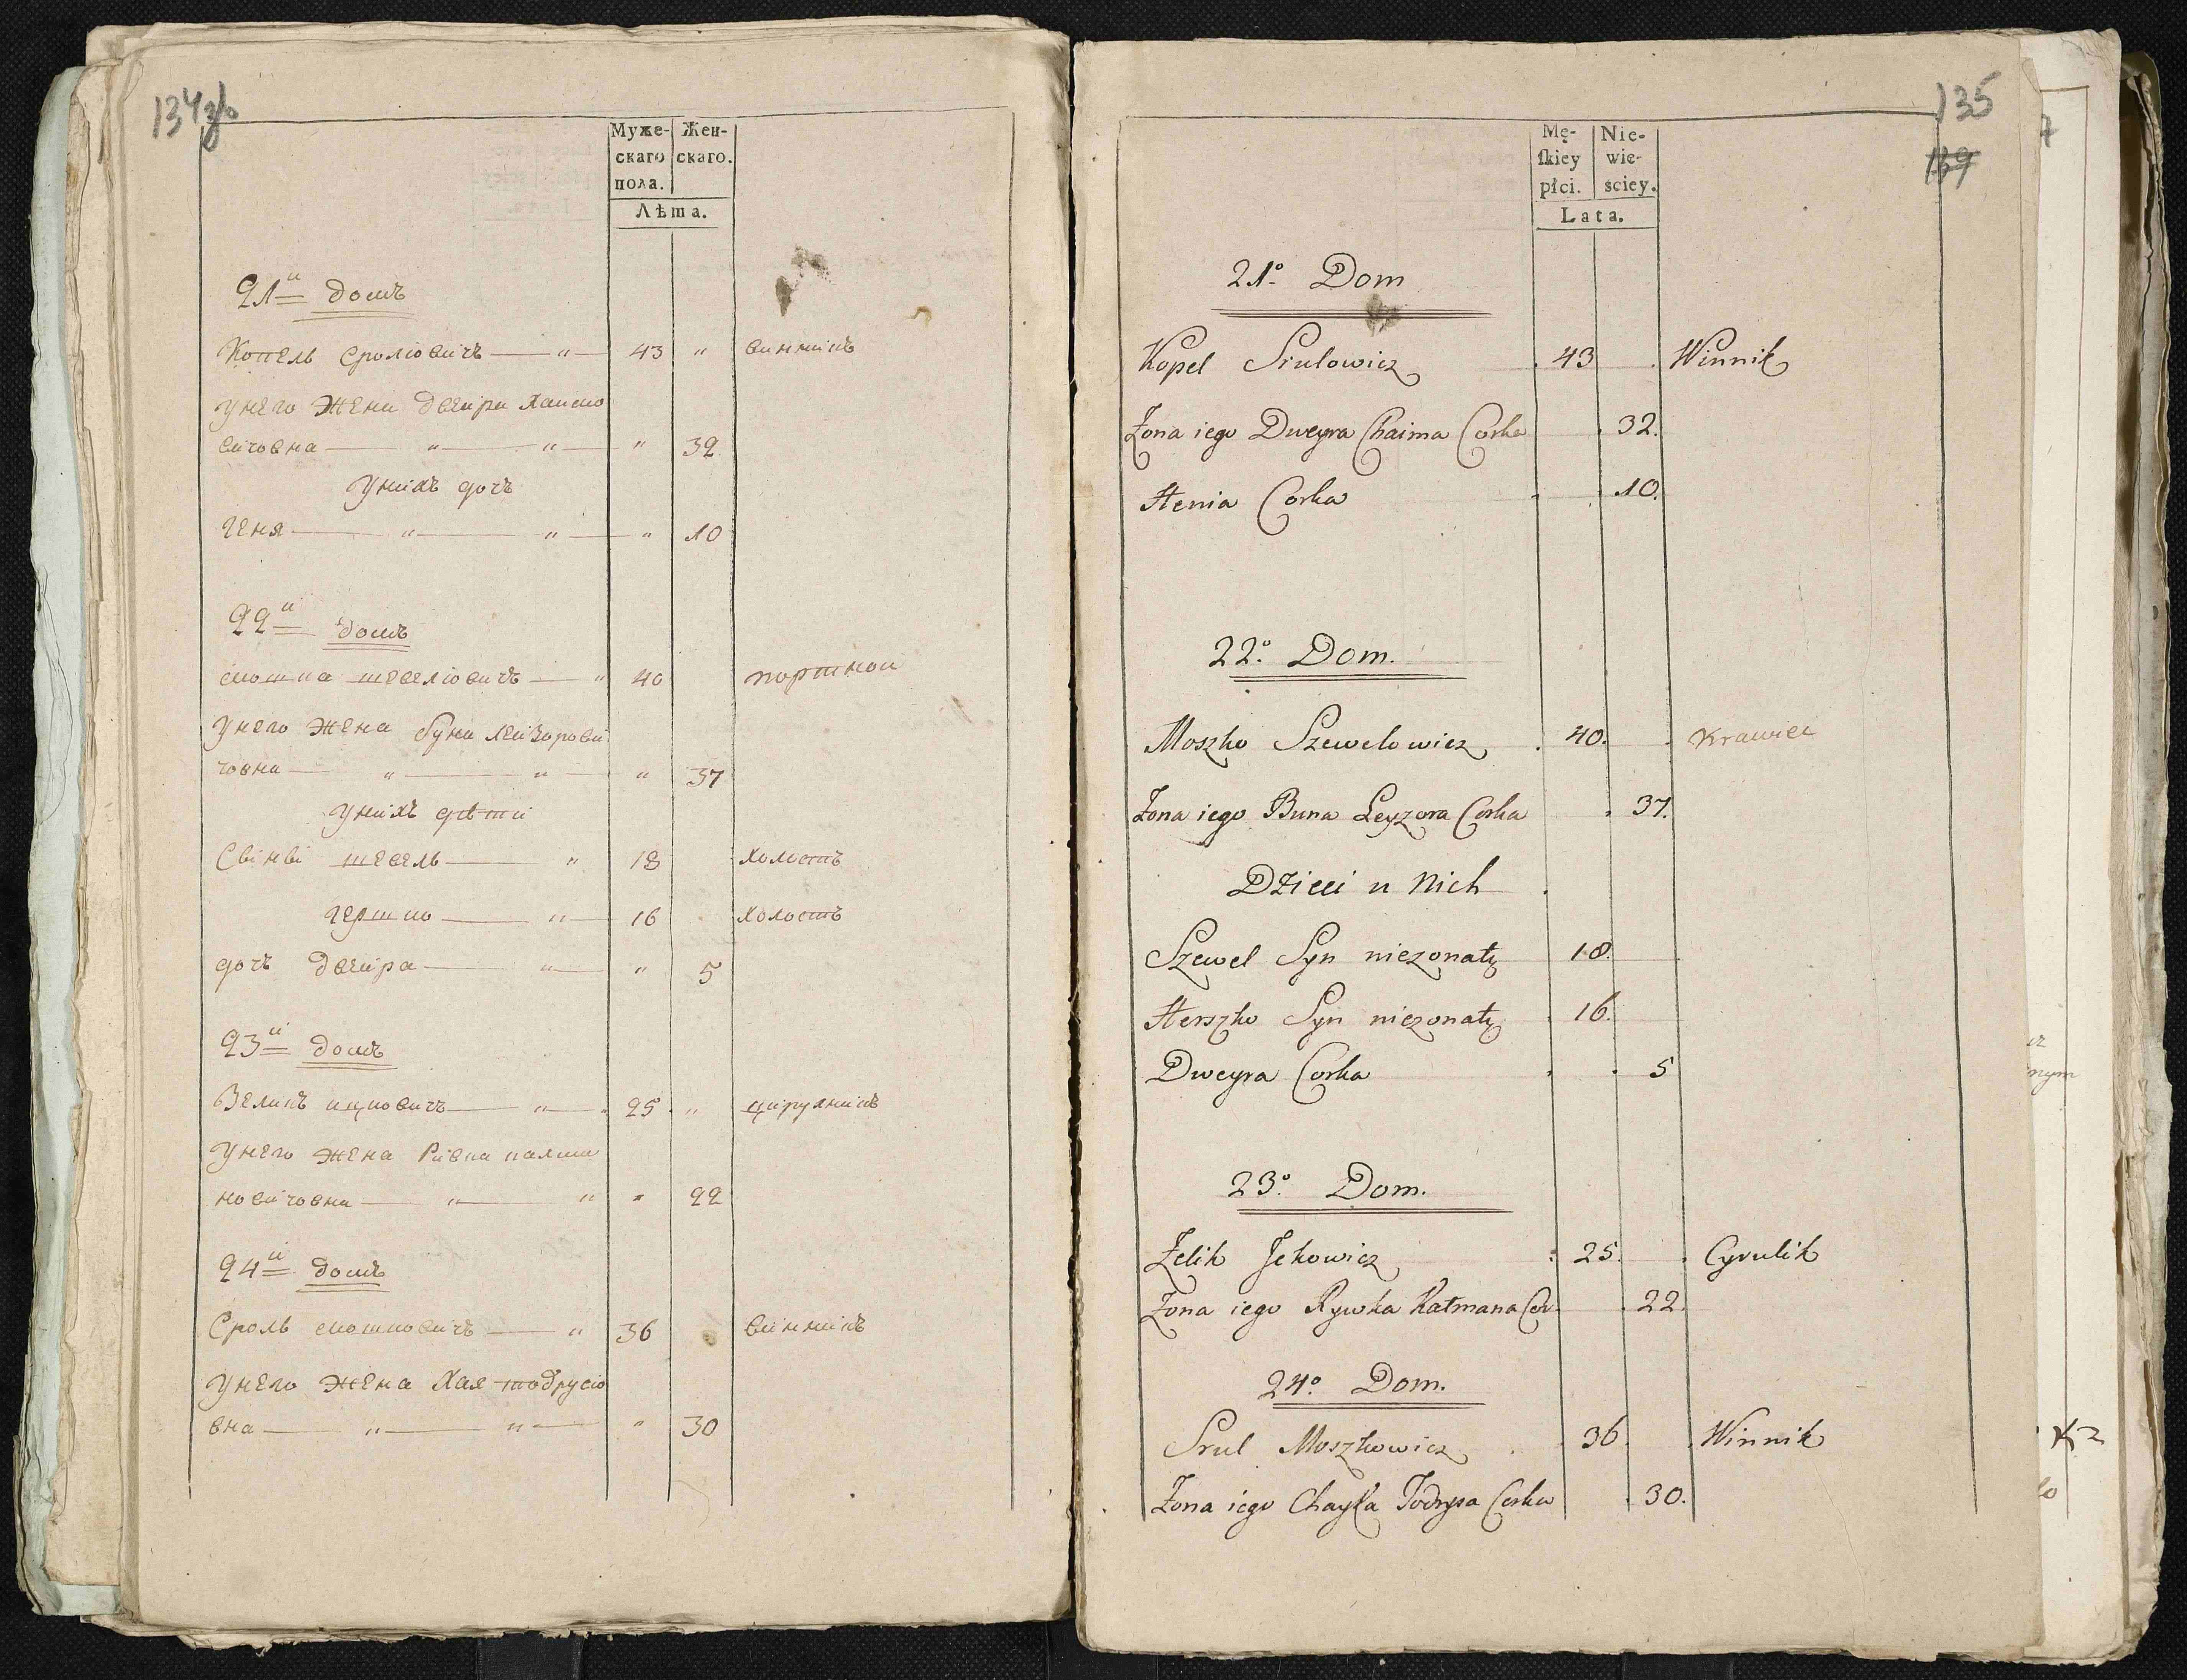 134 зв
Муже- Жен-
скаго скаго.
пола.
Лѣта.
21й домъ
Копель Сролювичъ — " — 43 " винникъ
у него жена Двейра Хаимо
вичовна — " — " — " 32
у нихъ дочъ
Геня — " — " — " 10
22й домъ
Мошка Шевелювичъ — " 40 портной
у него жена Буна Лейзорови
човна — " — " — " 37
у нихъ дѣти
Сыны Шевель — " 18 холостъ
Гершко — " — 16 холостъ
дочъ Двейра — " — " 5
23й домъ
Зеликъ Ицковичъ — " — 25 " цируликъ
у него жена Ривка Калма
новичовна — " — " " 22
24й домъ
Сроль Мошковичъ — " 36 винникъ
у него жена Хая Тодрусіо
вна — " — " — " 30
135
139
Mę- Nie-
skiey wie-
płci. sciey.
Lata.
21º Dom
Kopel Srulowicz 43 Winnik
Żona iego Dweyra Chaima Corka 32.
Henia Corka 10.
22º Dom.
Moszko Szewelowicz 40. Krawiec
Żona iego Buna Leyzora Corka 37.
Dzieci u Nich
Szewel Syn niezonaty 18.
Herszko Syn niezonaty 16.
Dweyra Corka 5
23º Dom.
Zelik Jckowicz 25. Cyrulik
Żona iego Rywka Kałmana Cor 22.
24º Dom.
Srul Moszkowicz 36. Winnik
Żona iego Chayka Todrysa Corka 30.